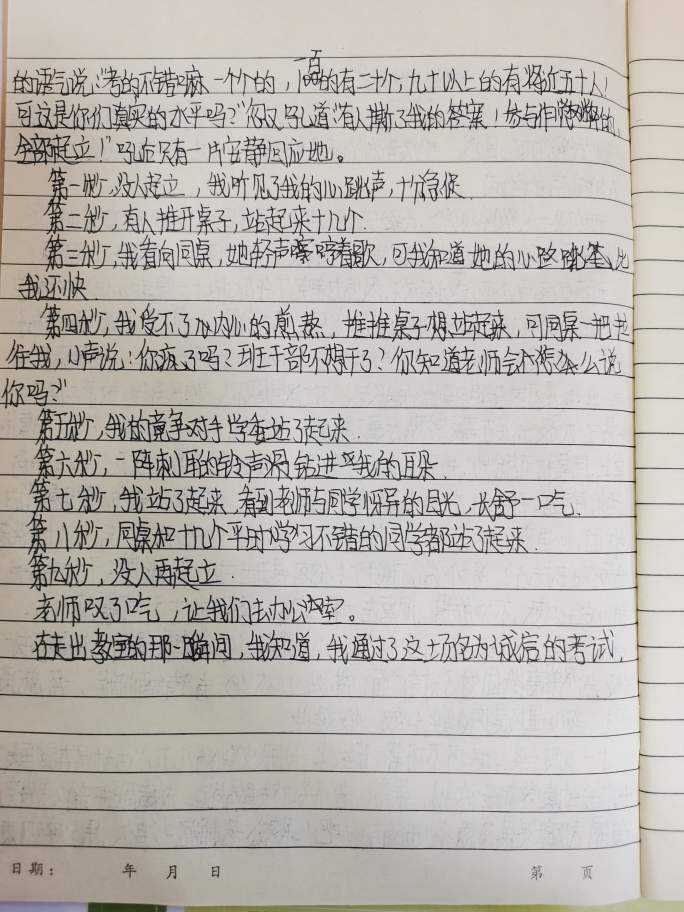 一百
的语气说:“考的不错嘛一个个的，100的有二十个,九十以上的有将近五十人!
可这是你们真实的水平吗?”忽又吼道“有人撕了我的答案!参与作弊的,
全部起立!”吼后只有一片安静回应她。
第一秒,没人起立，我听见了我的心跳声,十分急促.
第二秒,有人推开桌子,站起来十几个.
第三秒,我看向同桌,她轻声哼着歌,可我知道她的心跳比
我还快.
第四秒,我受不了内心的煎熬，推推桌子想站起来,可同桌一把拉
住我,小声说:“你疯了吗?班干部不想干了?你知道老师会怎么说
你吗?”
第五秒,我的竞争对手学委站了起来.
第六秒,一阵刺耳的铃声滑钻进我的耳朵.
第七秒,我站了起来,看到老师与同学惊异的目光,长舒一口气.
第八秒,同桌和十几个平时学习不错的同学都站了起来.
第九秒,没人再起立.
老师叹了口气，让我们去办公室。
在走出教室的那一瞬间,我知道,我通过了这一场名为诚信的考试.
日期: 年 月 日 第 页